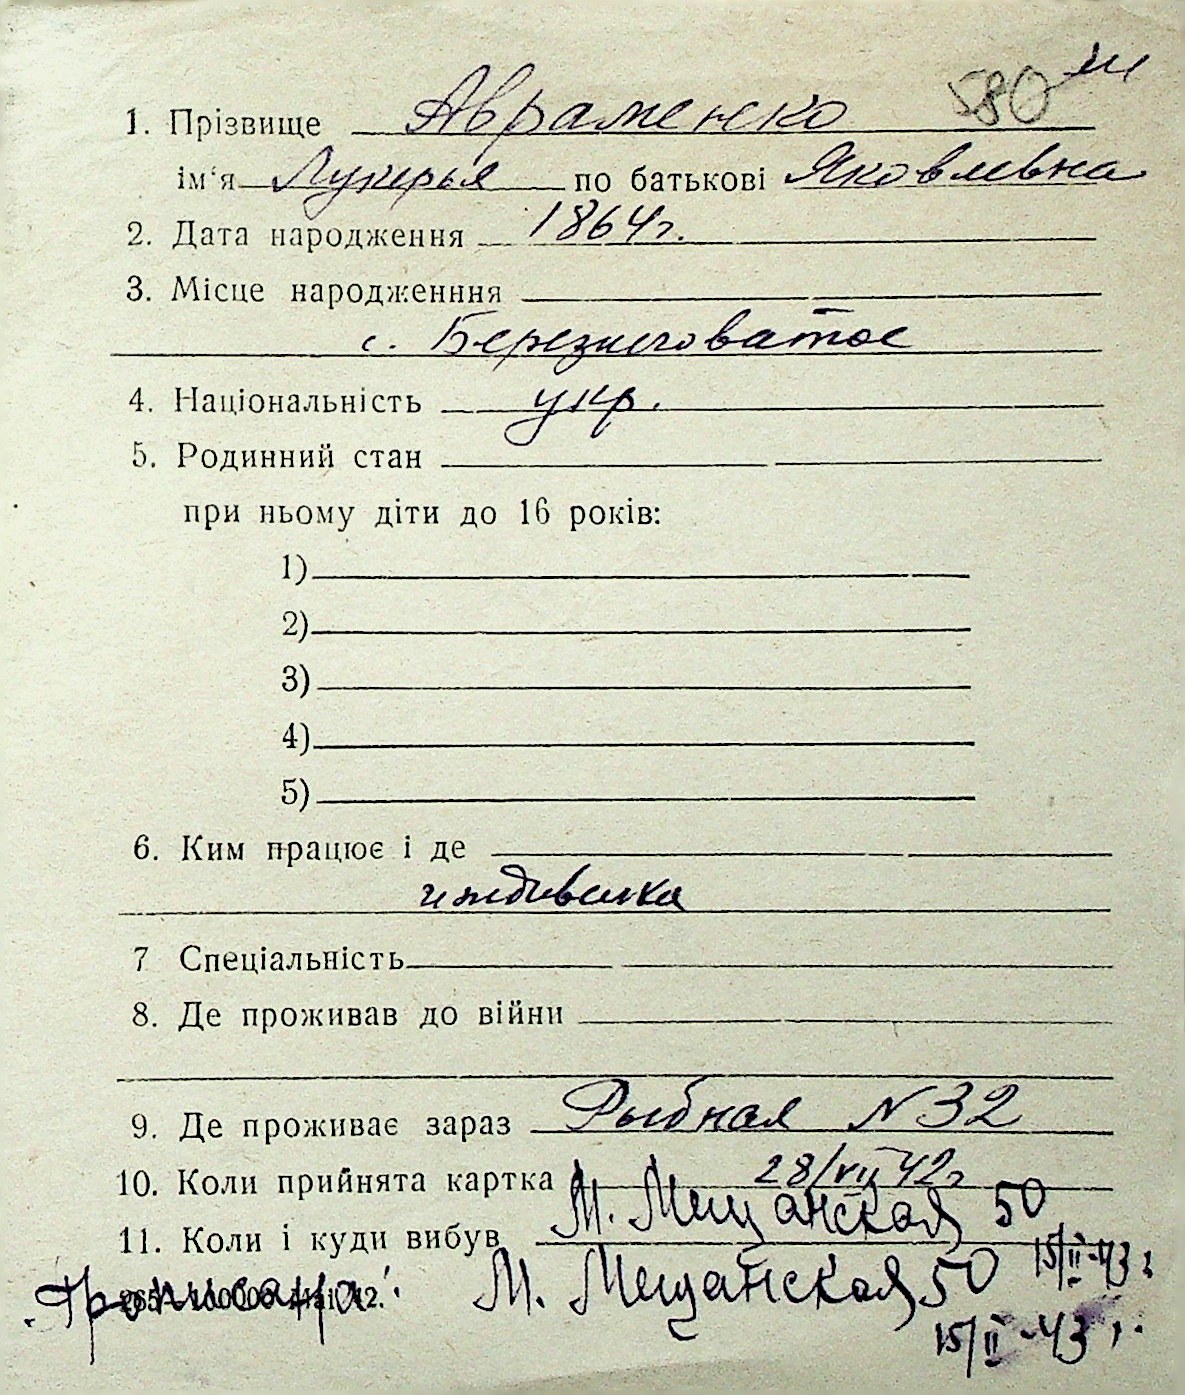 580
1. Прізвище Авраменко
ім'я Лукерья по батькові Яковлевна
2. Дата народження 1864 г.
3. Місце народженння
с. Березноватое
4. Національність укр.
5. Родинний стан
при ньому діти до 16 років:
1)
2)
3)
4)
5)
6. Ким працює і де
иждивенка
7 Спеціальність
8. Де проживав до війни
9. Де проживає зараз Рыбная N 32
10. Коли прийнята картка 28/VII 42 г
11. Коли і куди вибув М. Мещанская 50
15/II-43 г
Прописана: М. Мещанская 50
15/II-43 г.